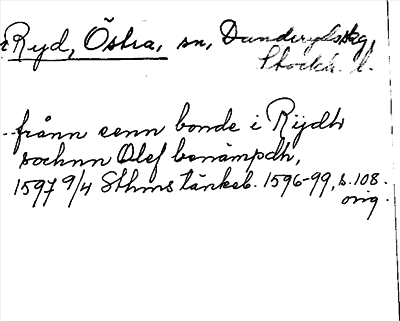 Ryd, Östra, sn, Danderyds skg,
Stockh. l.
frånn senn bonde i Rijdh
sochnn Olef benämpdh,
1597 9/4 Sthms tänkeb. 1596-99, s. 108.
orig.